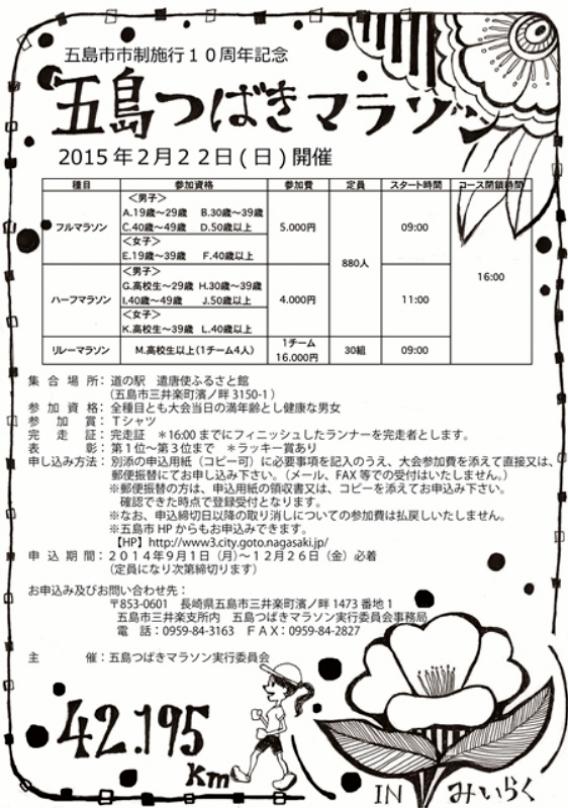 五島市市制施行10周年記念
五島つばきマラソン
2015年2月22日(日)開催
種目 参加資格 参加費 定員 スタート時間 コース閉鎖時間
フルマラソン
<男子>
A.19歳～29歳 B.30歳～39歳
C.40歳～49歳 D.50歳以上
<女子>
E.19歳～39歳 F.40歳以上
5.000円
880人
09:00
16:00
ハーフマラソン
<男子>
G.高校生～29歳 H.30歳～39歳
I.40歳～49歳 J.50歳以上
<女子>
K.高校生～39歳 L.40歳以上
4.000円
11:00
リレーマラソン M.高校生以上(1チーム4人)
1チーム
16.000円
30組 09:00
集合場所：道の駅 遣唐使ふるさと館
(五島市三井楽町濱ノ畔3150-1)
参加資格：全種目とも大会当日の満年齢とし健康な男女
参加賞：Tシャツ
完走証：完走証 ＊16:00までにフィニッシュしたランナーを完走者とします。
表彰：第1位～第3位まで ＊ラッキー賞あり
申し込み方法：別添の申込用紙（コピー可）に必要事項を記入のうえ、大会参加費を添えて直接又は、
郵便振替にてお申し込み下さい。（メール、FAX等での受付はいたしません。）
※郵便振替の方は、申込用紙の領収書又は、コピーを添えてお申込み下さい。
確認できた時点で登録受付となります。
※なお、申込締切日以降の取り消しについての参加費は払戻しいたしません。
※五島市HPからもお申込みできます。
【HP】http://www3.city.goto.nagasaki.jp/
申込期間：2014年9月1日（月）～12月26日（金）必着
（定員になり次第締切ります）
お申込み及びお問い合わせ先：
〒853-0601 長崎県五島市三井楽町濱ノ畔1473番地1
五島市三井楽支所内 五島つばきマラソン実行委員会事務局
電話：0959-84-3163 FAX：0959-84-2827
主催：五島つばきマラソン実行委員会
42.195
Km
IN みいらく